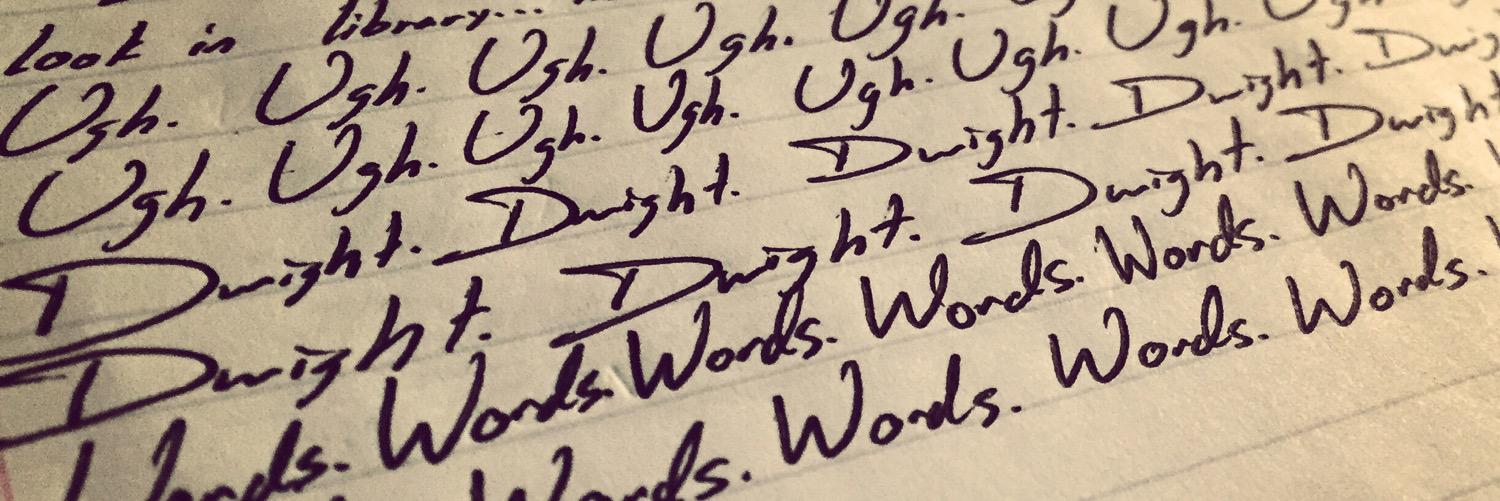 look in library...
Ugh. Ugh. Ugh. Ugh. Ugh.
Ugh. Ugh. Ugh. Ugh. Ugh. Ugh. Ugh.
Dwight. Dwight. Dwight. Dwight.
Dwight. Dwight. Dwight. Dwight
Words. Words. Words. Words. Words. Words.
Words. Words. Words. Words.